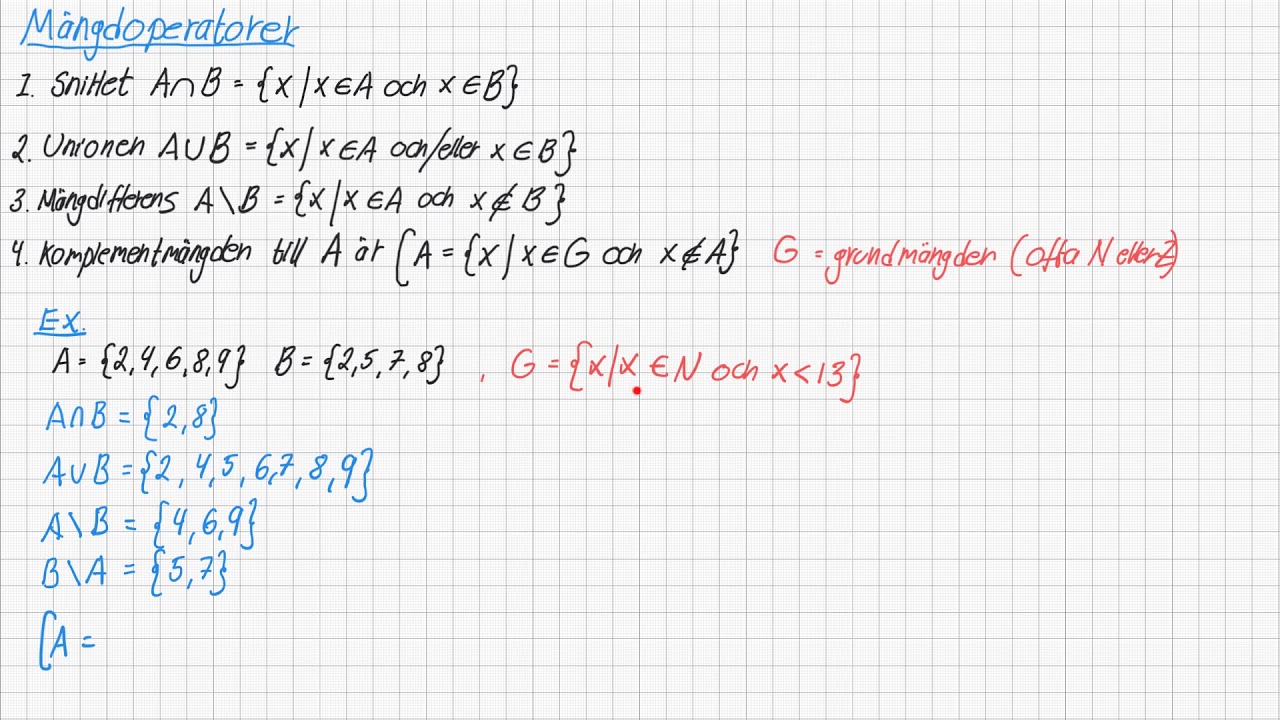 Mängdoperatorer
1. Snittet A∩B = {x | x ∈ A och x ∈ B}
2. Unionen A∪B = {x | x ∈ A och/eller x ∈ B}
3. Mängdifferens A \ B = {x | x ∈ A och x ∉ B}
4. Komplementmängden till A är ∁A = {x | x ∈ G och x ∉ A} G = grundmängden (Ofta N eller Z)
Ex.
A = {2,4,6,8,9} B = {2,5,7,8} , G = {x | x ∈ N och x < 13}
A∩B = {2,8}
A∪B = {2, 4, 5, 6,7, 8, 9}
A \ B = {4,6,9}
B \ A = {5,7}
∁A =